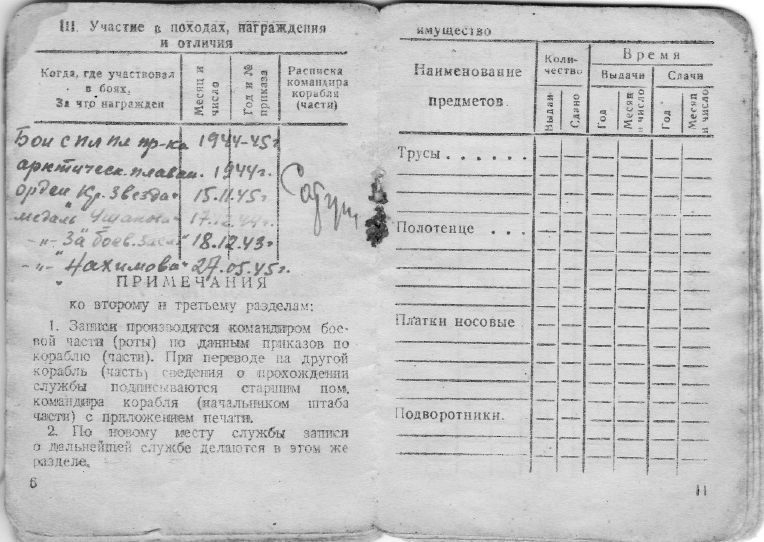 III. Участие в походах, награждения
и отличия
Когда, где участвовал
в боях,
За что награжден
Месяц и
число
Год и №
приказа
Расписка
командира
корабля
(части)
Бои с пл пл пр-ка 1944-45г
арктическ. плаван. 1944г.
орден "Кр. Звезда" 15.11.45г
медаль "Ушакова" 17. 44г.
-"- "За боев. засл" 18.12.43г
-"- "Нахимова" 27.05.45г.
ПРИМЕЧАНИЯ
ко второму и третьему разделам:
1. Записи производятся командиром бое-
вой части (роты) по данным приказов по
кораблю (части). При переводе на другой
корабль (часть) сведения о прохождении
службы подписываются старшим пом.
командира корабля (начальником штаба
части) с приложением печати.
2. По новому месту службы записи
о дальнейшей службе делаются в этом же
разделе.
6
имущество
Наименование
предметов.
Коли-
чество
Выдано
Сдано
Время
Выдачи
Сдачи
Год
Месяц
и число
Год
Месяц
и число
Трусы . . . . . .
Полотенце . . .
Платки носовые
Подворотники.
11